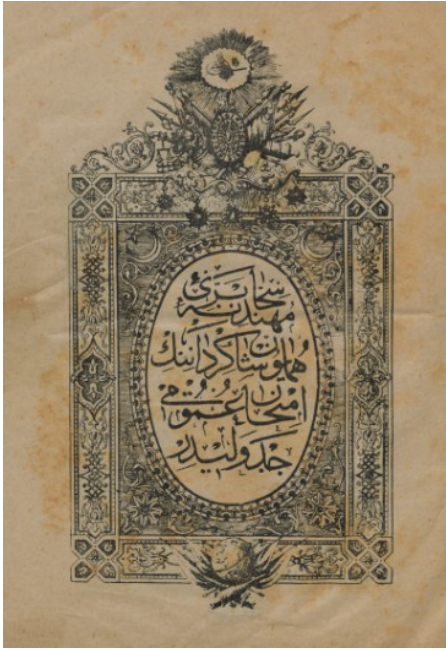 مهندسخانهٔ بری
همایون شاكرداننك
امتحان عمومی
جدولیدر